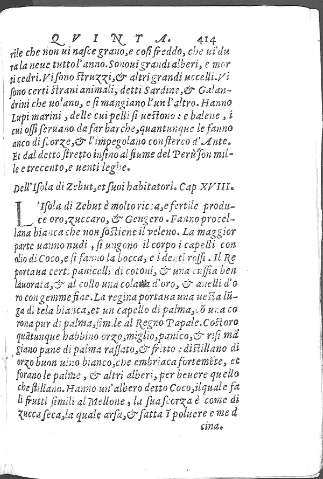 QVINTA. 414
rile che non ui nasce grano, e cosi freddo, che ui du
ra la neue tutto l'anno. Sonoui grandi alberi, e mor
ti cedri. Vi sono struzzi, & altri grandi uccelli. Vi
sono certi strani animali, detti Sardine, & Galan-
drini che uolano, e si mangiano l'un l'altro. Hanno
Lupi marini, delle cui pelli si uestono: e balene, i
cui ossi seruano da far barche, quantunque le fanno
anco di scorze, & l'impegolano con sterco d'Ante.
Et dal detto stretto insino al fiume del Perù son mil-
le e trecento, e uenti leghe.
Dell'Isola di Zebut, et suoi habitatori. Cap XVIII.
L'Isola di Zebut è molto ricca, e fertile produ-
ce oro, zuccaro, & Gengero. Fanno procel-
lana bianca che non sostiene il veleno. La maggior
parte uanno nudi, si ungono il corpo i capelli con
olio di Coco, e si fanno la bocca, e i denti rossi. Il Re
portaua cert. pannicelli di cotoni, & una cuffia ben
lauorata, & al collo una colana d'oro, & anelli d'o
ro con gemme fine. La regina portaua una uesta lũ-
ga di tela bianca, et un capello di palma, cõ una co
rona pur di palma, simile al Regno Papale. Costoro
quãtunque habbino orzo, miglio, panico, & risi mã
giano pane di palma rassato, & fritto: distillano di
orzo buon uino bianco, che embriaca fortemẽte, et
forano le palme, & altri alberi, per beuere quello
che stillano. Hanno un'albero detto Coco, ilquale fa
li frutti simili al Mellone, la sua scorza è come di
zucca seca, la quale arsa, & fatta ĩ poluere e med
cina.